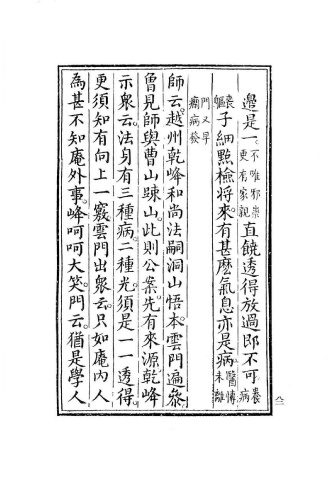 邊是一不唯邪祟更有家親直饒透得放過即不可養病
喪軀子細點檢將來。有甚麼氣息亦是病。醫博未離
門又早癇病發
師云。越州乾峰和尚法嗣洞山悟本。雲門遍參
曾見師與曹山踈山。此則公案。先有來源。乾峰
示衆云。法身有三種病。二種光。須是一一透得。
更須知有向上一竅。雲門出衆云。只如庵內人
爲甚不知庵外事。峰呵呵大笑。門云。猶是學人